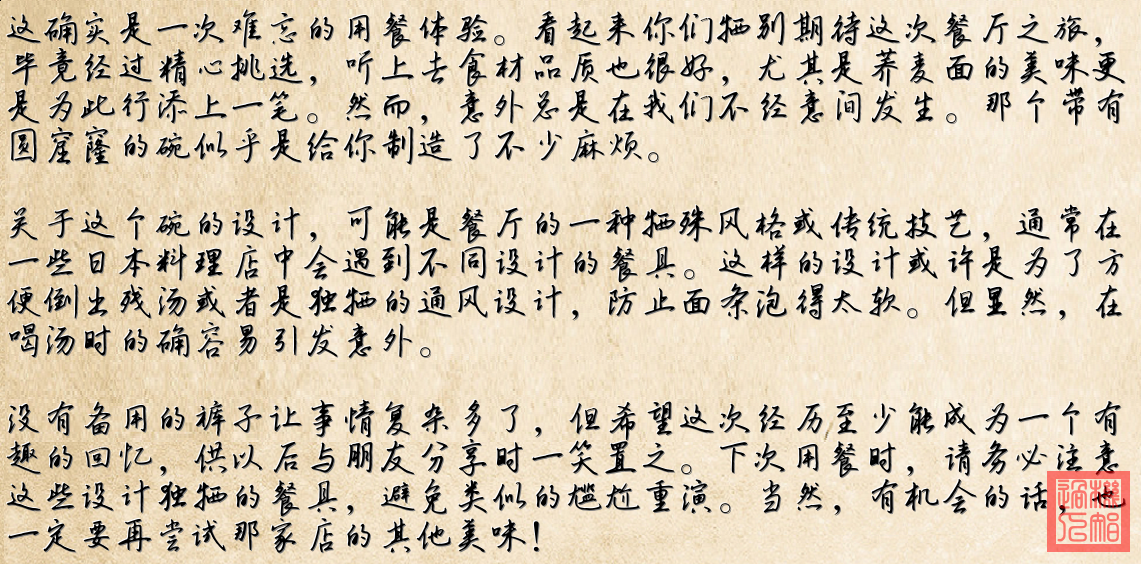 这确实是一次难忘的用餐体验。看起来你们牺别期待这次餐厅之旅，
毕竟经过精心挑选，听上去食材品质也很好，尤其是荞麦面的美味更
是为此行添上一笔。然而，意外总是在我们不经意间发生。那个带有
圆窟窿的碗似乎是给你制造了不少麻烦。
关于这个碗的设计，可能是餐厅的一种牺殊风格或传统技艺，通常在
一些日本料理店中会遇到不同设计的餐具。这样的设计或许是为了方
便倒出残汤或者是独牺的通风设计，防止面条泡得太软。但显然，在
喝汤时的确容易引发意外。
没有备用的裤子让事情复杂多了，但希望这次经历至少能成为一个有
趣的回忆，供以后与朋友分享时一笑置之。下次用餐时，请务必注意
这些设计独牺的餐具，避免类似的尴尬重演。当然，有机会的话，也
一定要再尝试那家店的其他美味！